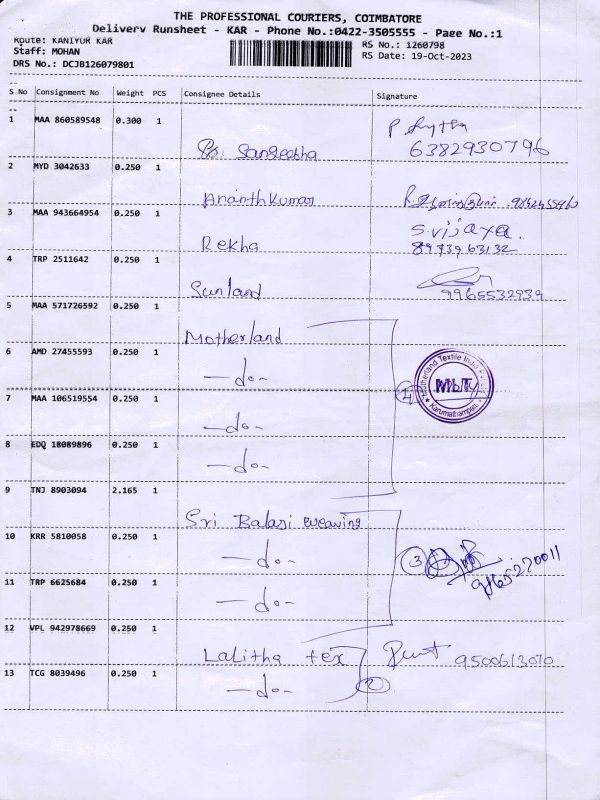 THE PROFESSIONAL COURIERS, COIMBATORE
Delivery Runsheet - KAR - Phone No.:0422-3505555 - Page No.:1
Route: KANIYUR KAR
Staff: MOHAN
DRS No.: DCJB126079801
RS No.: 1260798
RS Date: 19-Oct-2023
S No Consignment No Weight PCS Consignee Details Signature
1 MAA 860589548 0.300 1
Sangeetha
6382930796
2 MYD 3042633 0.250 1
Ananthkumar
3 MAA 943664954 0.250 1
Rekha
S.vijaya.
8973963132
4 TRP 2511642 0.250 1
Sunland
9965532939
5 MAA 571726592 0.250 1
Motherland
6 AMD 27455593 0.250 1
-do-
7 MAA 106519554 0.250 1
-do-
8 EDQ 18089896 0.250 1
-do-
4
Motherland Textile India
Karumathampatti
9 TNJ 8903094 2.165 1
Sri Balaji weaving
10 KRR 5810058 0.250 1
-do-
11 TRP 6625684 0.250 1
-do-
3
12 VPL 942978669 0.250 1
Lalitha tex
9500613070
13 TCG 8039496 0.250 1
-do-
2